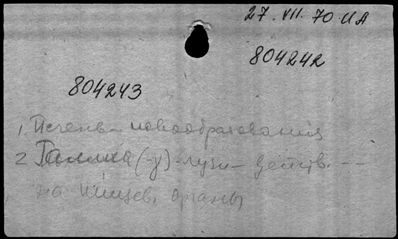 27. VII. 70 ИА
804242
804243
1. Печень – новообразования
2 Гамма (-γ)-лучи – действ. ---
на пищев. органы